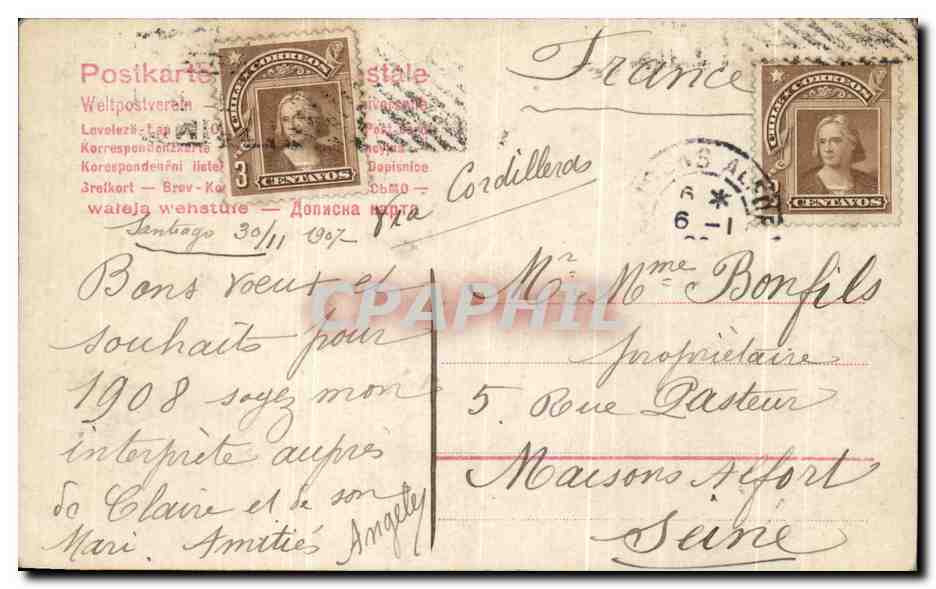 Postkarte
stale
Weltpostverein —
Levelezö-Lap
Korrespondenzkarte
Korespondenční listek
Dopisnice
Brefkort — Brev-Ko
сьмо —
wałeja wehstule — Дописна карта
CHILE CORREOS
3
CENTAVOS
CHILE CORREOS
CENTAVOS
France
via Cordilleras
NS ALFOR
6 *
6 - 1
Santiago 30/11 1907
Bons voeux et
souhaits pour
1908 soyez mon
interprète auprès
de Claire et de son
Mari. Amitiés
Angely
Mr. Mme Bonfils
propriétaire
5. Rue Pasteur
Maisons Alfort
Seine
CPAPHIL